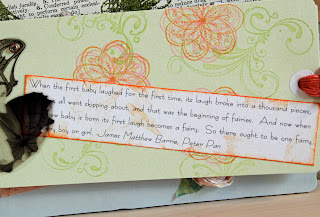 When the first baby laughed for the first time, its laugh broke into a thousand pieces,
all went skipping about, and that was the beginning of fairies. And now when
new baby is born its first laugh becomes a fairy. So there ought to be one fairy
boy or girl. James Matthew Barrie, Peter Pan